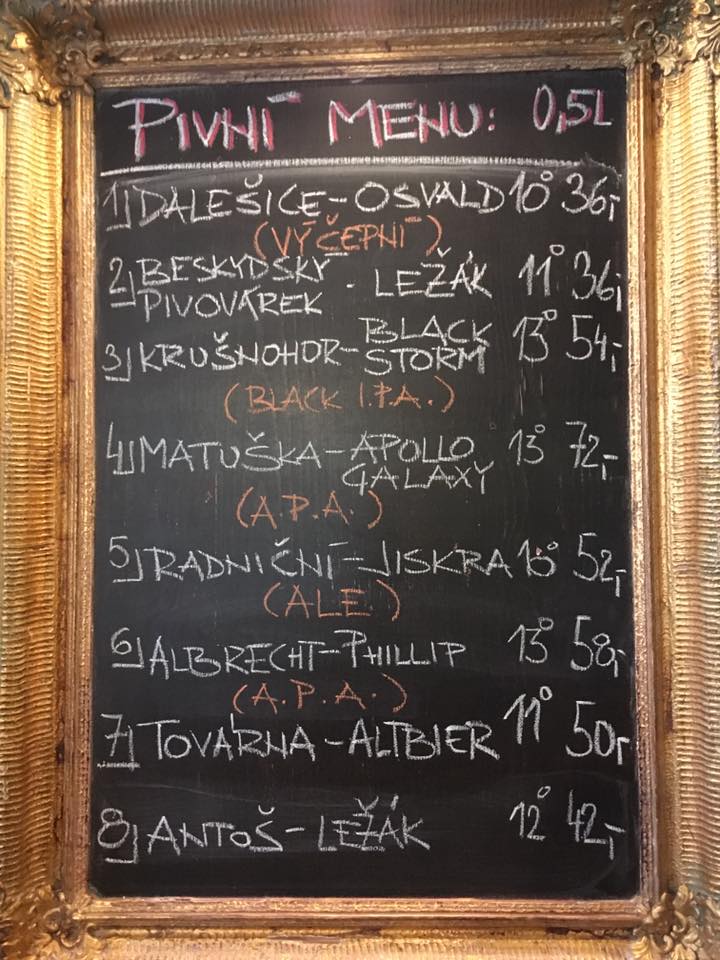 PIVNÍ MENU: 0,5L
1) DALEŠICE-OSVALD 10° 36,-
(VÝČEPNÍ)
2) BESKYDSKÝ PIVOVÁREK - LEŽÁK 11° 36,-
3) KRUŠNOHOR- BLACK STORM 13° 54,-
(BLACK I.P.A.)
4) MATUŠKA-APOLLO GALAXY 13° 72,-
(A.P.A.)
5) RADNIČNÍ-JISKRA 10° 52,-
(ALE)
6) ALBRECHT-PHILLIP 13° 58,-
(A.P.A.)
7) TOVÁRNA-ALTBIER 11° 50,-
8) ANTOŠ-LEŽÁK 12° 42,-